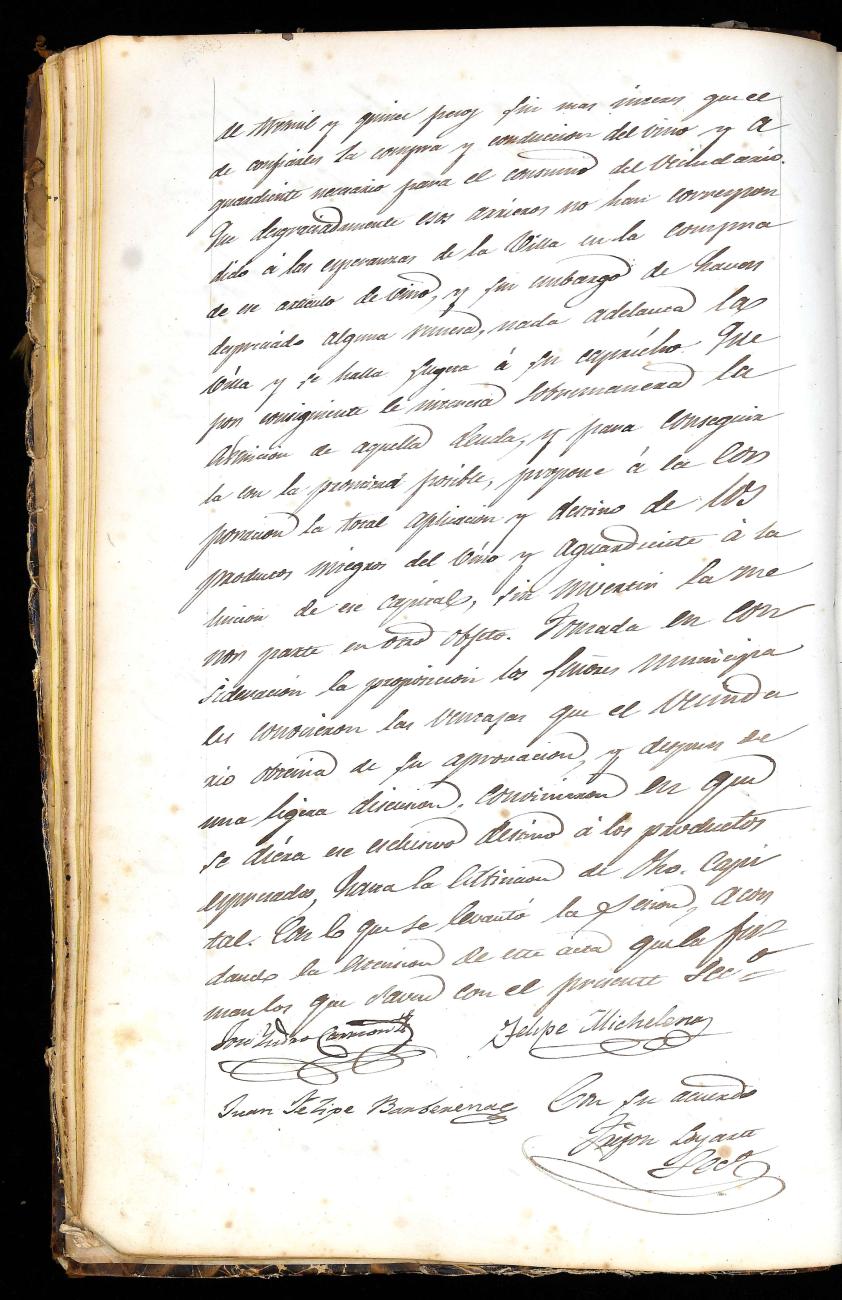 de tresmil y quince pesos sin mas interes que el
de confiarles la compra y conduccion del vino y A
guardiente necesario para el consumo del Vecindario.
Que desgraciadamente esos arrieros no han correspon
dido á las esperanzas de la Villa en la compra
de ese articulo de vino, y sin embargo de haver
despreciado alguna muestra, nada adelanta la
Villa y se halla sugeta á su capricho. Que
por consiguiente le interesa sobremanera la
de aquella deuda, y para conseguir
la con la posible, propone á la Cor
poracion la total aplicacion y destino de los
productos integros del Vino y aguardiente á la
de ese capital, sin invertir la me
nor parte en otro objeto. Tomada en con
sideracion la proposicion los Señores municipa
les conocieron las ventajas que el Vecinda
rio obtenia de su aprovacion, y despues de
una ligera discusion, convinieron en que
se diera ese esclusivo destino á los productos
espresados, hasta la estincion de dho. Capi
tal. Con lo que se levantó la sesion, acor
dando la estension de este acta que la fir
man los que saven con el presente Sec.º
José Ysidro Felipe Michelena
Juan Felipe Barberena Con su acuerdo
Layarte
Sec.º